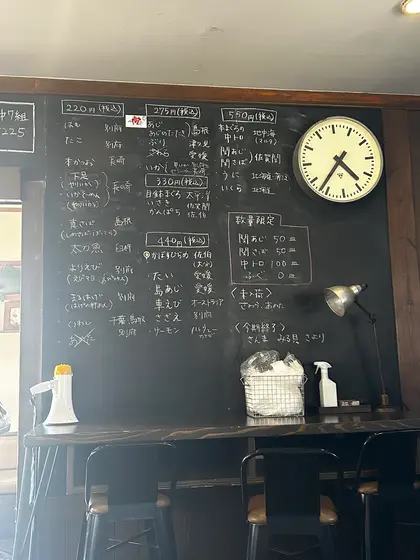 中7組
225
220円(税込)
はも 別府
たこ 別府
本かつお 長崎
下足
(やりいか)
いかそーめん
(やりいか) 長崎
真さば 島根
太刀魚 臼杵
よりえび 別府
まるはげ 別府
いわし 千葉 鳥取
275円(税込)
あじ
あじのたたき 島根
ぶり 津久見
さわら 愛媛
いか
330円(税込)
目鉢まぐろ 太平洋
いさき 佐賀関
かんぱち 佐伯
440円(税込)
かぼすひらめ 佐伯
(大分)
・たい 愛媛
・島あじ 愛媛
・車えび オーストラリア
・さざえ 別府
・サーモン ノルウェー
550円(税込)
本まぐろ
中トロ 地中海
(マルタ)
関あじ
関さば 佐賀関
うに 北海道
いくら 北海道
数量限定
関あじ 50=
関さば 50=
中トロ 100=
ふぐ 0=
〈未入荷〉
〈今期終了〉
さんま みる貝 さより